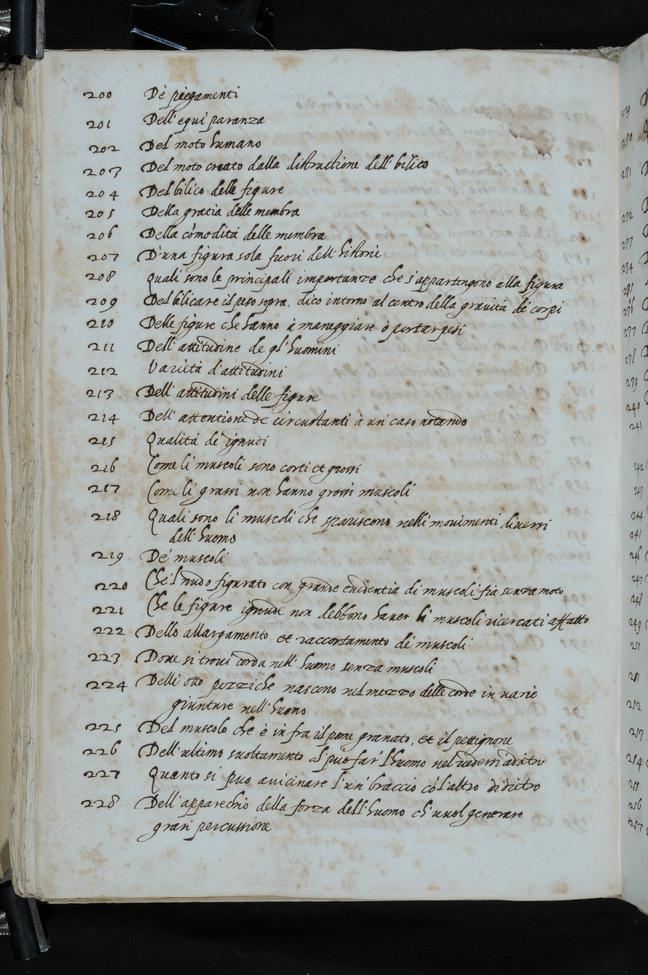 200 De piegamenti
201 Dell'equiparanza
202 Del moto humano
203 Del moto creato dalla distruttione dell bilico
204 Del bilico delle figure
205 Della gratia delle membra
206 Della comodità delle membra
207 D'una figura sola fuori dell'historie
208 Quali sono le principali importanze che s'appartengono alla figura
209 Del bilicare il peso sopra, dico intorno al centro della gravità de corpi
210 Delle figure che hanno à maneggiare ò portar pesi
211 Dell'attitudine de gl'huomini
212 Varietà d'attitudini
213 Dell'attitudini delle figure
214 Dell'attentione de circustanti à un caso notando
215 Qualità de ignudi
216 Come li muscoli sono corti et grossi
217 Come li grassi non hanno grossi muscoli
218 Quali sono li muscoli che spariscono nelli movimenti diversi
dell'huomo
219 De muscoli
220 Che'l nudo figurato con grande evidentia di muscoli fia senza moto
221 Che le figure ignude non debbono haver li muscoli ricercati affatto
222 Dello allargamento et raccortamento de muscoli
223 Dove si trovi corda nell'huomo senza muscoli
224 Delli otto pezzi che nascono nel mezzo delle corde in varie
giunture nell'huomo
225 Del muscolo che è infra il pome granato, et il pettignone
226 Dell'ultimo svoltamento che può far l'huomo nel vedersi adietro
227 Quanto si può avicinare l'un braccio cò l'altro di dietro
228 Dell'apparechio della forza dell'huomo ch'vuol generare
gran percussione